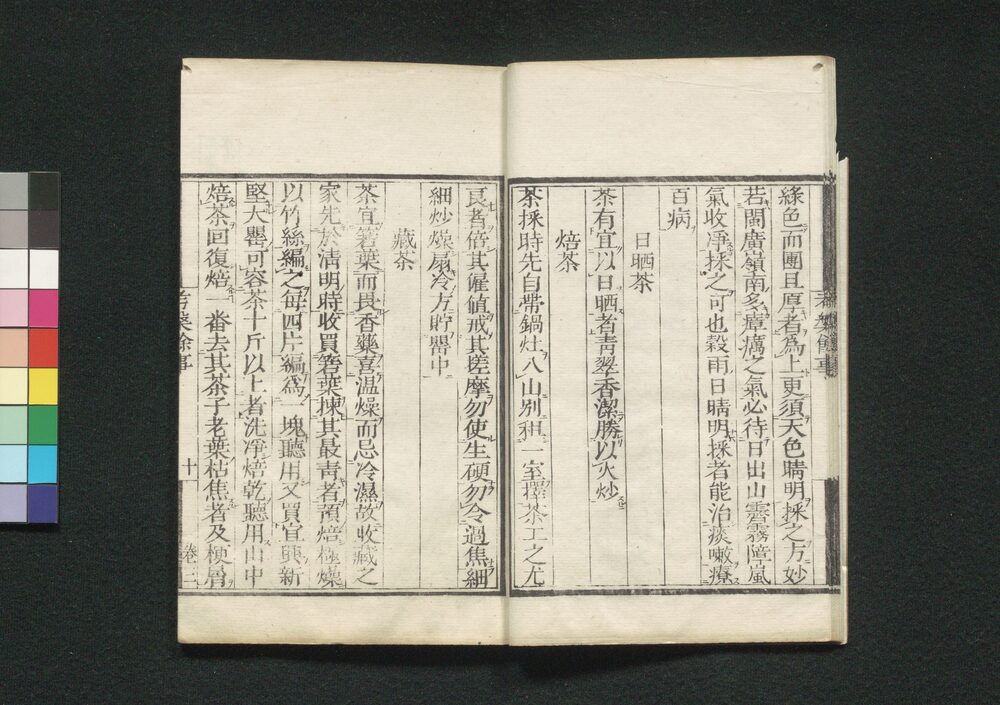 綠色而團且厚者為上更須天色晴明採之方妙
若閩廣嶺南多瘴癘之氣必待日出山霽霧障嵐
氣收淨採之可也穀雨日晴明採者能治痰嗽療
百病
日晒茶
茶有宜以日晒者青翠香潔勝以火炒
焙茶
茶採時先自帶鍋灶入山別租一室擇茶工之尤
良者倍其雇值戒其搓摩勿使生硬勿令過焦細
細炒燥扇冷方貯罌中
藏茶
茶宜箬葉而畏香藥喜温燥而忌冷濕故收藏之
家先於清明時收買箬葉揀其最青者預焙極燥
以竹絲編之每四片編為一塊聽用又買宜興新
堅大罌可容茶十斤以上者洗淨焙乾聽用山中
焙茶回復焙一番去其茶子老葉枯焦者及梗屑
考槃餘事
十
卷三